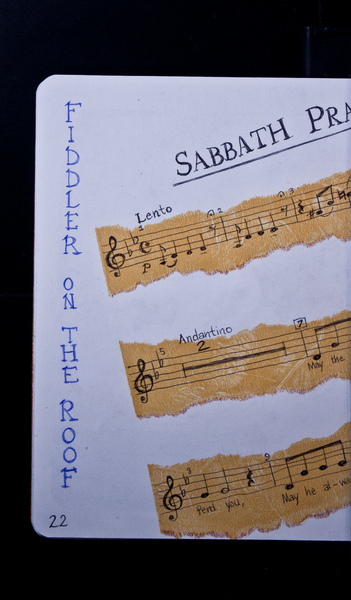 FIDDLER ON THE ROOF
SABBATH PRA
Lento
2
3
P
Andantino
5
2
7
May the
3
9
fend you,
May he al-wa
22